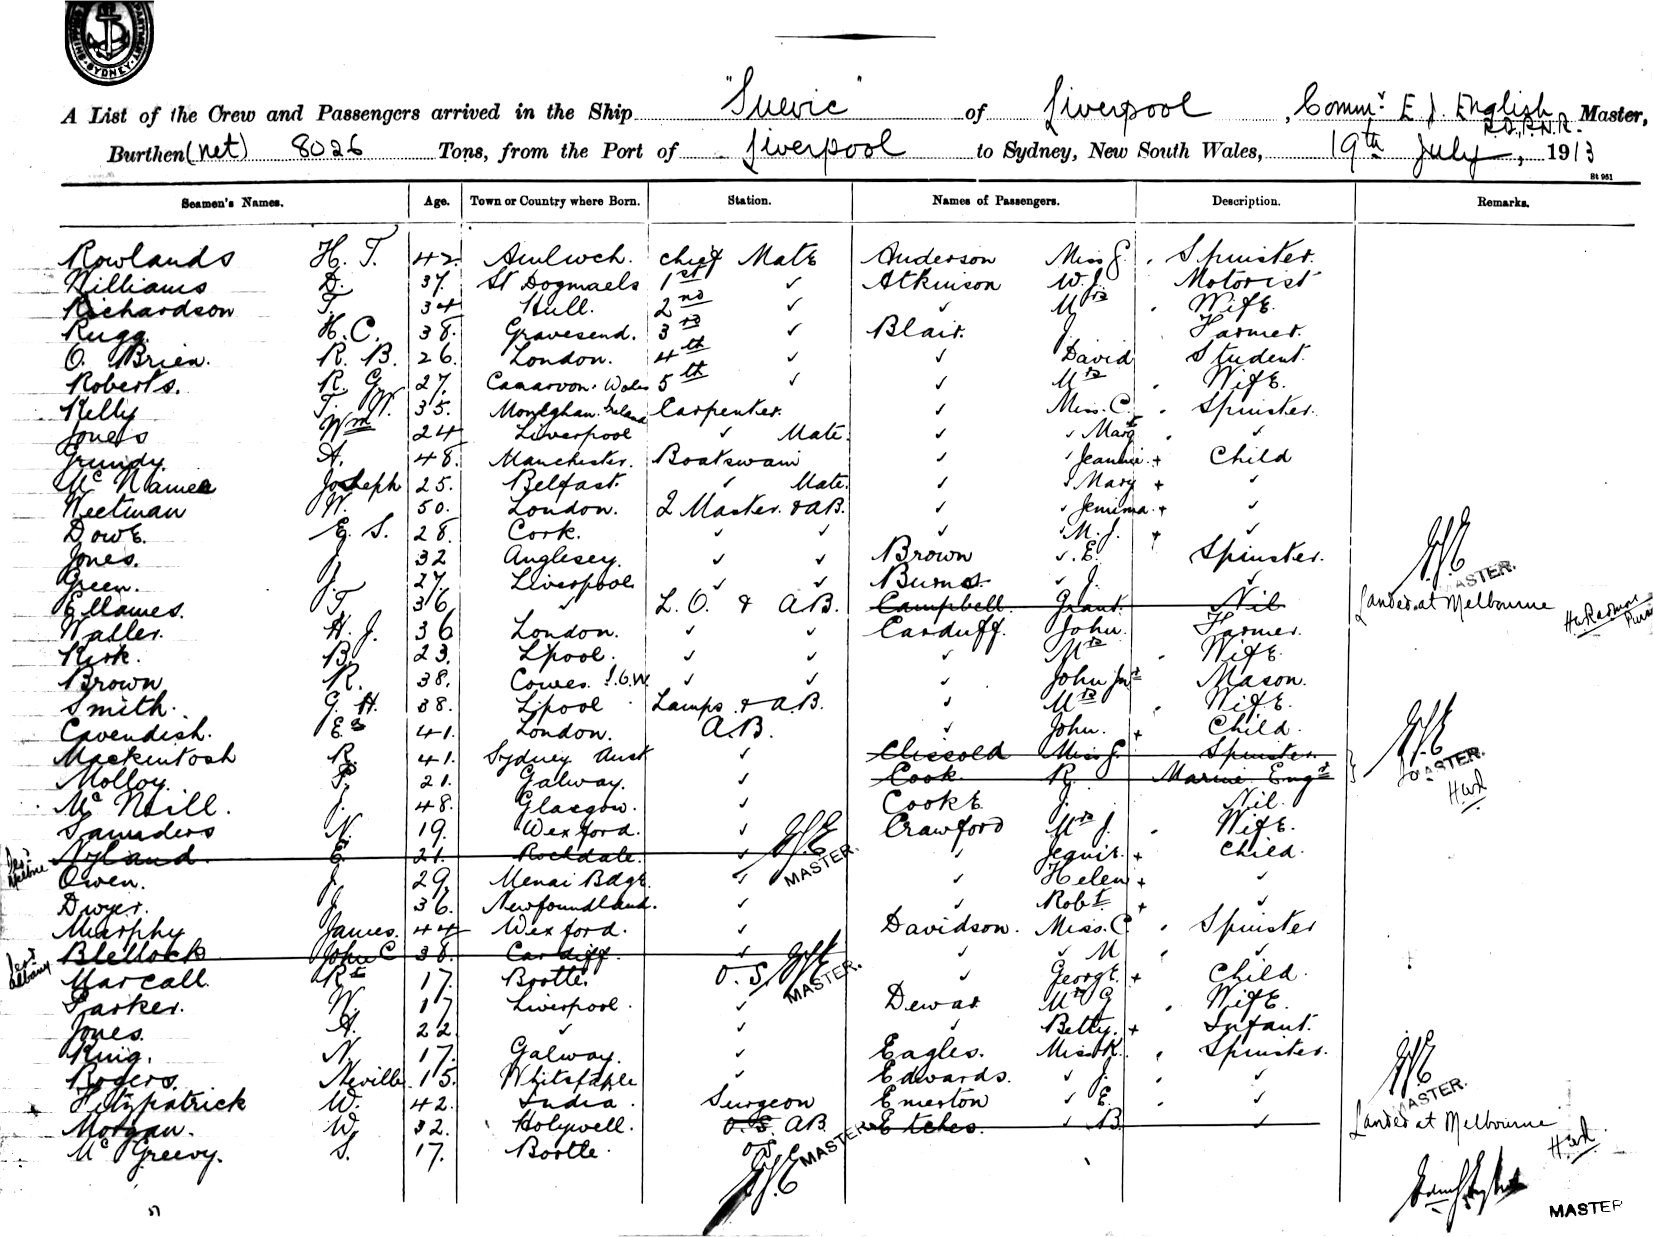 SHIPPING DEPARTMENT SYDNEY
A List of the Crew and Passengers arrived in the Ship "Suevic" of Liverpool, Commr. E J. English R.D, R.N.R. Master,
Burthen (net) 8026 Tons, from the Port of Liverpool to Sydney, New South Wales, 19th July, 1913
St 961
Seamen's Names. Age. Town or Country where Born. Station. Names of Passengers. Description. Remarks.
Rowlands H. T. 42 Amlwch. chief Mate Anderson Miss G. Spinster.
Williams D. 37. St Dogmaels 1st ✓ Atkinson W. J. Motorist
Richardson T. 34 Hull. 2nd ✓ ✓ Mrs Wife.
Rugg. H. C. 38. Gravesend. 3rd ✓ Blair. J. Farmer.
O. Brien. R. B. 26. London. 4th ✓ ✓ David Student.
Roberts. R. G. 27. Canarvon. Wales 5th ✓ ✓ Mrs Wife.
Kelly T. W. 35. Moneghan. Ireland Carpenter. ✓ Miss. C. Spinster.
Jones Wm 24 Liverpool ✓ Mate. ✓ ✓ Margt ✓
Grundy. A. 48. Manchester. Boatswain ✓ ✓ Jeannie + Child
Mc Namee Joseph 25. Belfast. ✓ Mate. ✓ ✓ Mary + ✓
Weetman W. 50. London. Q Master. & AB. ✓ ✓ Jemima + ✓
Dowe. E. S. 28. Cork. ✓ ✓ ✓ M. J. + ✓
Jones. J. 32 Anglesey. ✓ ✓ Brown ✓ E. Spinster.
Green. J. 27. Liverpool ✓ ✓ Burns ✓ J. MASTER.
Ellames. T. 36 ✓ L. O. & AB. Campbell. Grant. Nil Landed at Melbourne
Waller. H. J. 36 London. ✓ ✓ Carduff. John. Farmer.
Kirk. B. 23. Lpool. ✓ ✓ ✓ Mrs Wife.
Brown R. 38. Cowes. I.O.W. ✓ ✓ ✓ John Jnr Mason.
Smith. G. H. 38. Lpool Lamps & AB. ✓ Mrs Wife.
Cavendish. 41. London. A.B. ✓ John. + Child.
Mackintosh R. 41. Sydney Aust ✓ Clissold Miss G. Spinster.
Molloy. P. 21. Galway. ✓ Cook R. Marine Engr MASTER.
Mc Neill. J. 48. Glasgow. ✓ Cooke J. Nil.
Saunders N. 19. Wexford. ✓ Crawford Mrs J. Wife.
Nyland. E. 21. Rockdale. ✓ MASTER. ✓ Jeguir. + Child.
Owen. J. 29. Menai Bdge. ✓ ✓ Helen + ✓
Dwyer. J. 36. Newfoundland. ✓ ✓ Robt + ✓
Murphy James. 44 Wexford. ✓ Davidson. Miss. C. Spinster
Blellock John C 38. Cardiff. ✓ ✓ ✓ M ✓
Marcall. Rt 17. Bootle. O.S. MASTER. ✓ George. + Child.
Parker. W. 17 Liverpool. ✓ Dewar Mrs G Wife.
Jones. A. 22. ✓ ✓ ✓ Betty. + Infant.
King. N. 17. Galway. ✓ Eagles. Miss K. Spinster.
Rogers. Neville 15. Whitstable ✓ Edwards. ✓ J. ✓
Fitzpatrick W. 42. India. Surgeon Emerton ✓ E. ✓ MASTER.
Morgan. W. 32. Holywell. O.S. AB. Etches. ✓ B. ✓ Landed at Melbourne
Mc Greevy. S. 17. Bootle. O.S. MASTER
MASTER